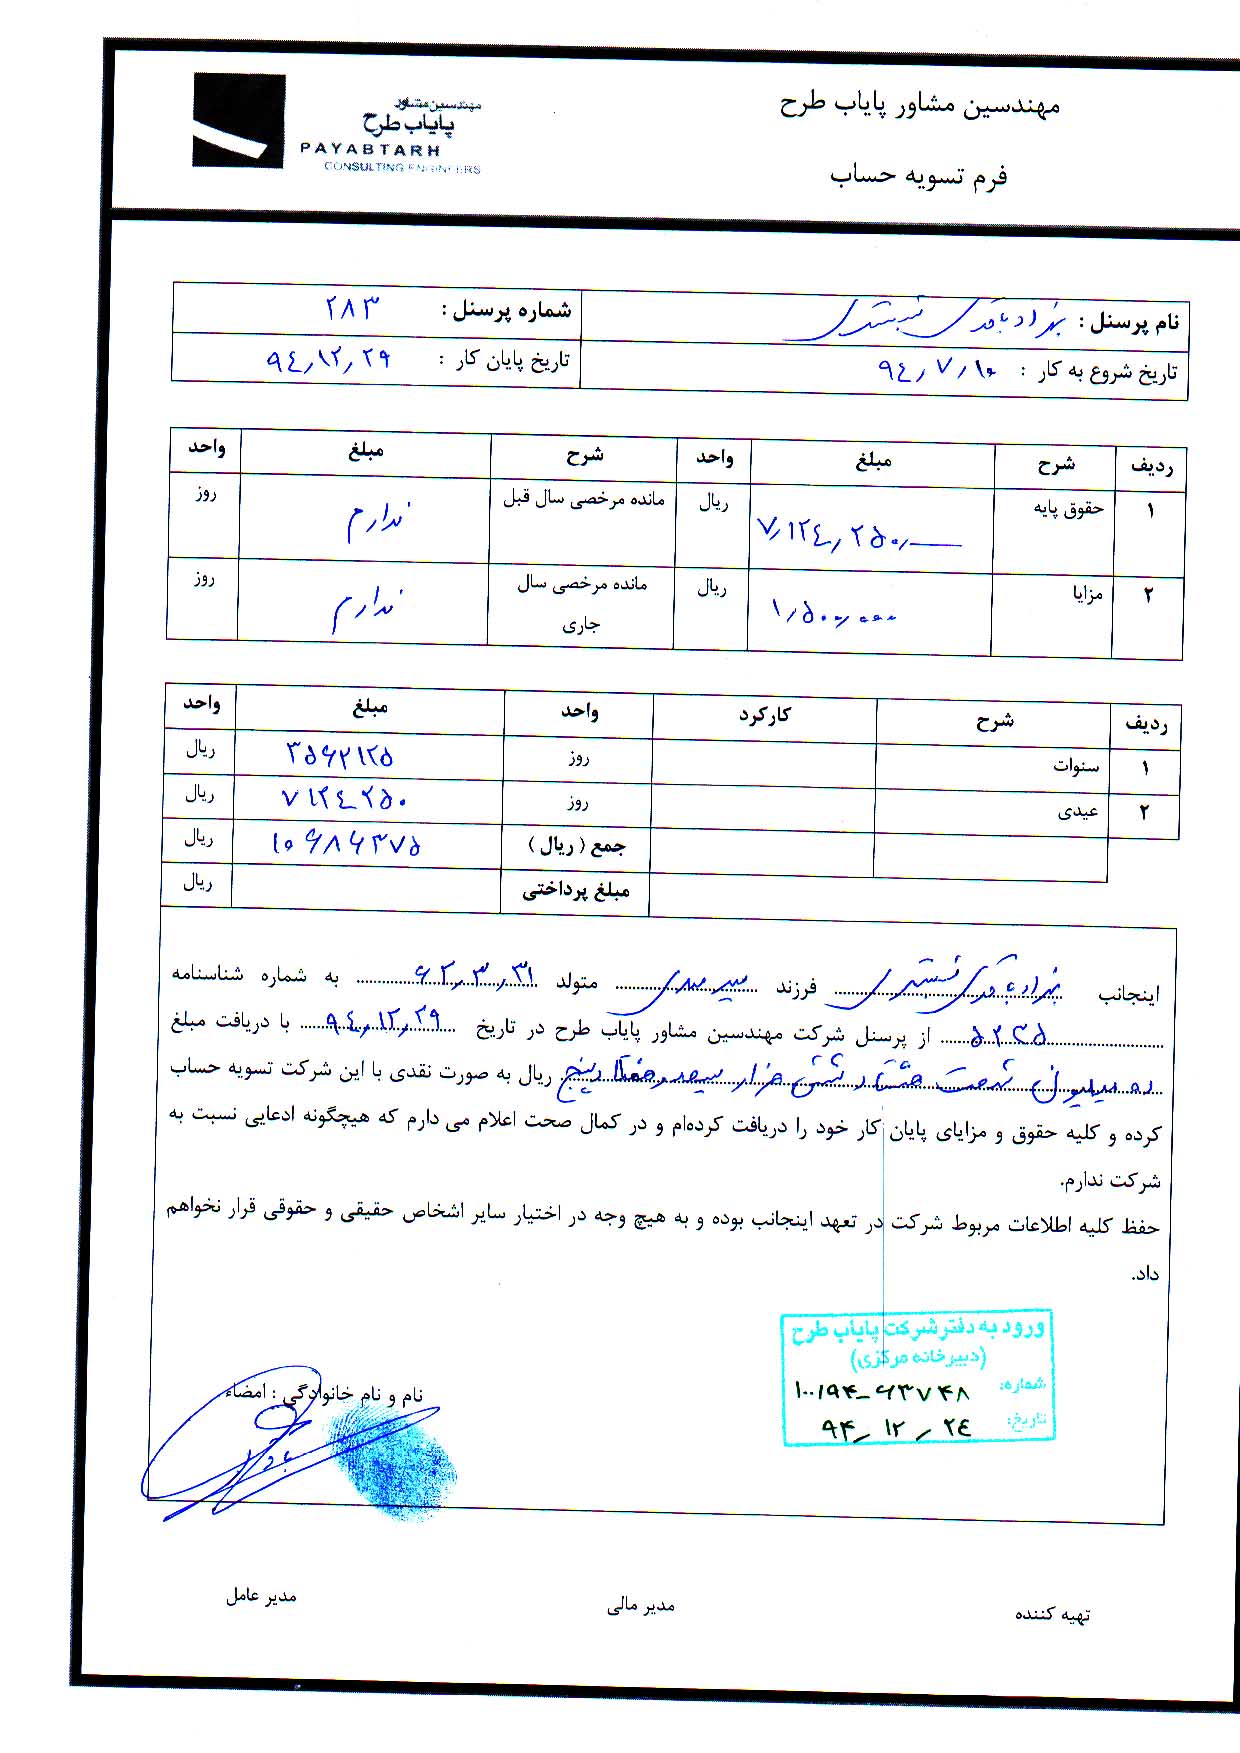 مهندسین مشاور پایاب طرح
فرم تسویه حساب
مهندسین مشاور
پایاب طرح
PAYABTARH
CONSULTING ENGINEERS
نام پرسنل : بهزاد شماره پرسنل : ۲۸۳
تاریخ شروع به کار : ۹٤٫۷٫۱۰ تاریخ پایان کار : ۹٤٫۱۲٫۲۹
ردیف شرح مبلغ واحد شرح مبلغ واحد
۱ حقوق پایه ۷٫۱۲٤٫۲۵۰٫ ریال مانده مرخصی سال قبل ندارم روز
۲ مزایا ۱٫۵۰۰٫۰۰۰ ریال مانده مرخصی سال جاری ندارم روز
ردیف شرح کارکرد واحد مبلغ واحد
۱ سنوات روز ۳۵۶۲۱۲۵ ریال
۲ عیدی روز ۷۱۲٤۲۵۰ ریال
جمع ( ریال ) ۱۰۶۸۶۳۷۵ ریال
مبلغ پرداختی ریال
اینجانب بهزاد فرزند متولد ۶۲٫۳٫۳۱ به شماره شناسنامه
۵۲۳۵ از پرسنل شرکت مهندسین مشاور پایاب طرح در تاریخ ۹٤٫۱۲٫۲۹ با دریافت مبلغ
ده میلیون ششصد هشتاد شش هزار سیصد و هفتاد پنج ریال به صورت نقدی با این شرکت تسویه حساب
کرده و کلیه حقوق و مزایای پایان کار خود را دریافت کرده‌ام و در کمال صحت اعلام می دارم که هیچگونه ادعایی نسبت به
شرکت ندارم.
حفظ کلیه اطلاعات مربوط شرکت در تعهد اینجانب بوده و به هیچ وجه در اختیار سایر اشخاص حقیقی و حقوقی قرار نخواهم
داد.
ورود به دفتر شرکت پایاب طرح
(دبیرخانه مرکزی)
شماره: ۱۰۰۱۹۴-۶۳۷۴۸
تاریخ: ۹۴٫ ۱۲ ٫ ۲٤
نام و نام خانوادگی : امضاء
تهیه کننده مدیر مالی مدیر عامل